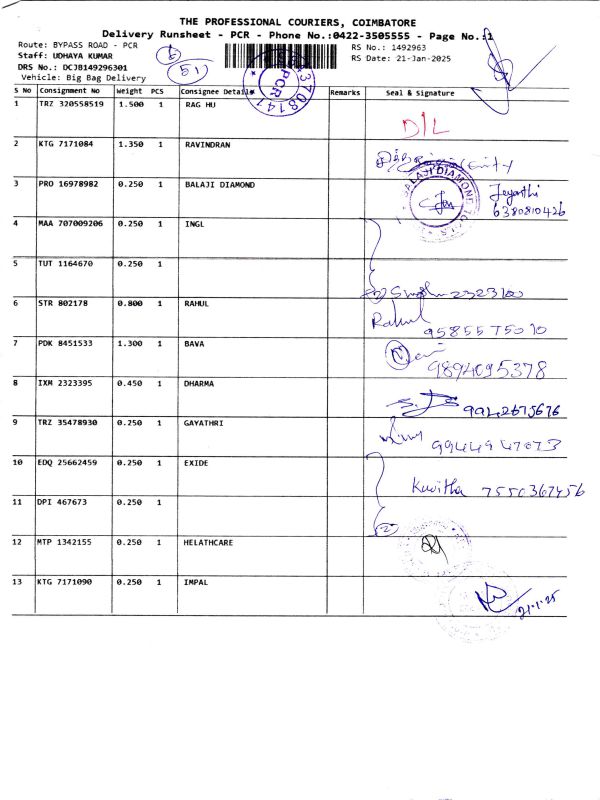 THE PROFESSIONAL COURIERS, COIMBATORE
Delivery Runsheet - PCR - Phone No.:0422-3505555 - Page No.:1
Route: BYPASS ROAD - PCR
RS No.: 1492963
Staff: UDHAYA KUMAR
RS Date: 21-Jan-2025
DRS No.: DCJB149296301
51
Vehicle: Big Bag Delivery
PCR
S No Consignment No Weight PCS Consignee Details Remarks Seal & Signature
1 TRZ 320558519 1.500 1 RAG HU
D/L
2 KTG 7171084 1.350 1 RAVINDRAN
3 PRO 16978982 0.250 1 BALAJI DIAMOND
BALAJI DIAMOND
Jeyanthi
6380810426
4 MAA 707009206 0.250 1 INGL
5 TUT 1164670 0.250 1
6 STR 802178 0.800 1 RAHUL
Rahul
9585575010
7 PDK 8451533 1.300 1 BAVA
9894095378
8 IXM 2323395 0.450 1 DHARMA
9942675676
9 TRZ 35478930 0.250 1 GAYATHRI
9944947073
10 EDQ 25662459 0.250 1 EXIDE
Kavitha 7550367456
11 DPI 467673 0.250 1
2
12 MTP 1342155 0.250 1 HELATHCARE
13 KTG 7171090 0.250 1 IMPAL
21.1.25